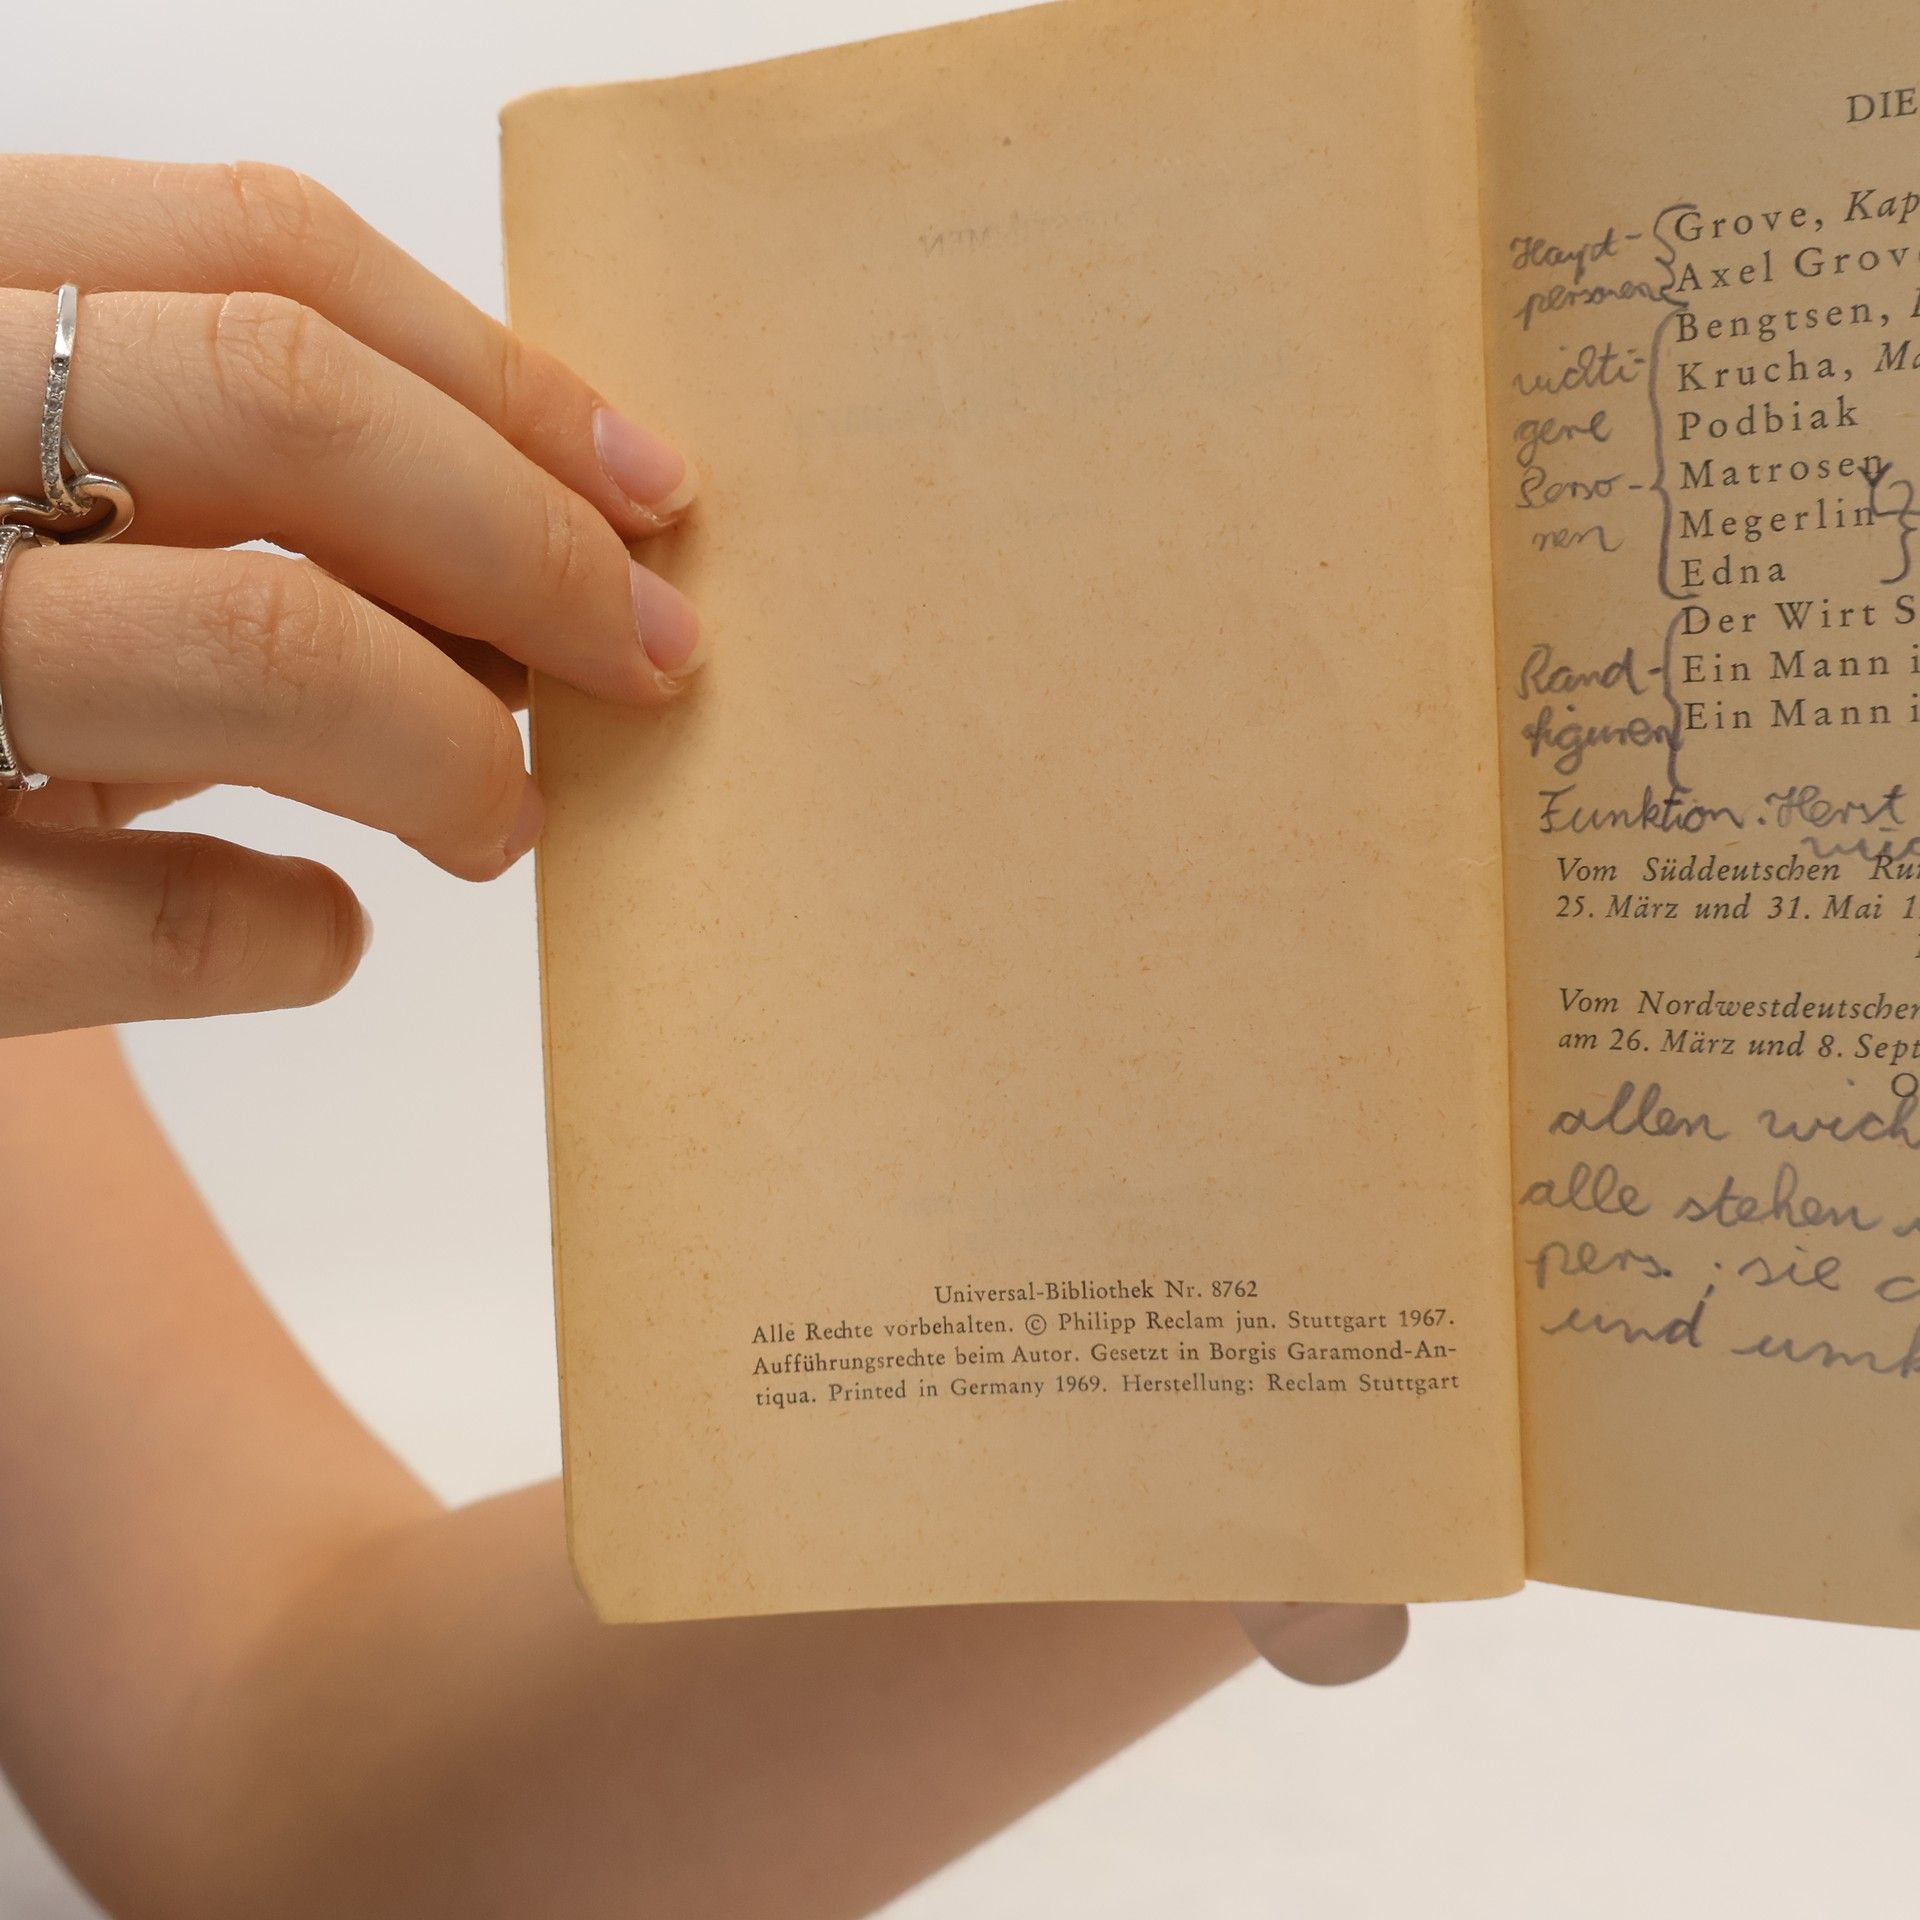 Universal-Bibliothek Nr. 8762
Alle Rechte vorbehalten. © Philipp Reclam jun. Stuttgart 1967.
Aufführungsrechte beim Autor. Gesetzt in Borgis Garamond-An-
tiqua. Printed in Germany 1969. Herstellung: Reclam Stuttgart
DIE
Haupt-
personen
Grove, Kap
Axel Grove
Bengtsen,
Krucha, Ma
Podbiak
Matrosen
Megerlin
Edna
wichti-
gere
Perso-
nen
Der Wirt S
Ein Mann i
Ein Mann i
Rand-
figuren
Funktion.
Vom Süddeutschen Run
25. März und 31. Mai 1
Vom Nordwestdeutschen
am 26. März und 8. Sept
allen wich
alle stehen
pers.; sie
und umk